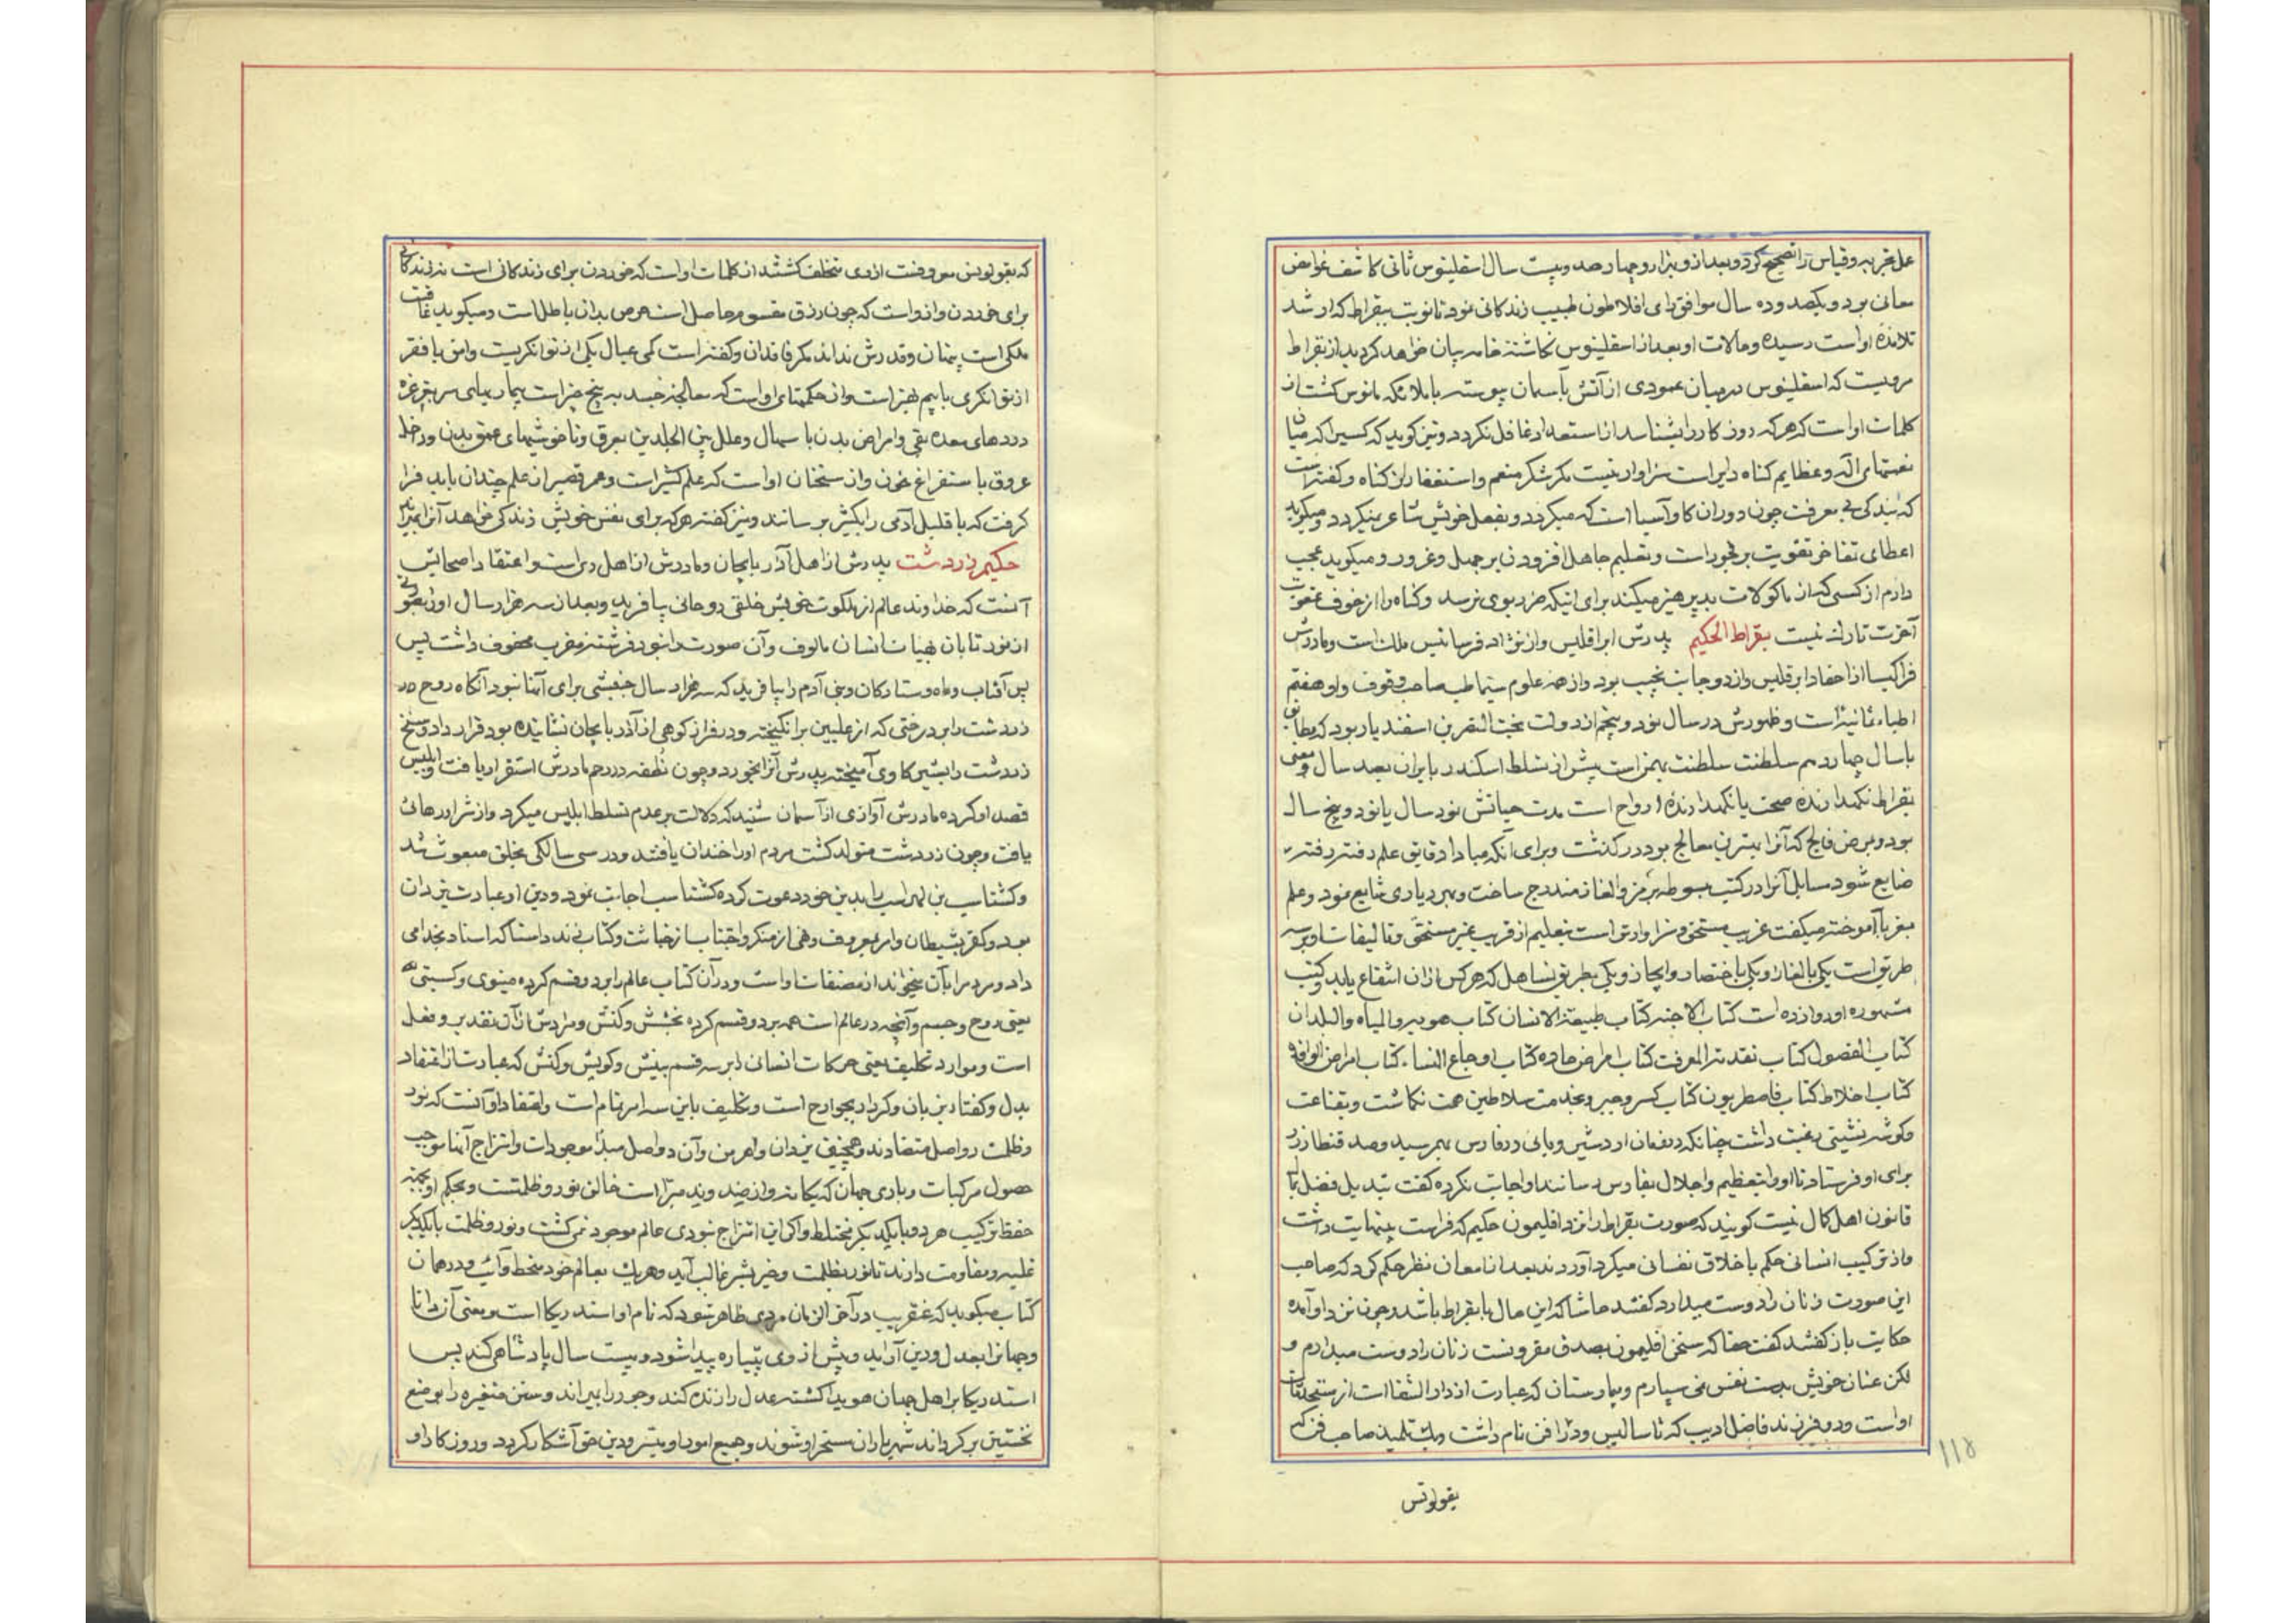 عمل تجربه و قیاس را تصحیح کرد و بعد از و بهزار و چهارصد و بیست سال اسقلینوس ثانی کاشف غوامض
معانی بود و یکصد و ده سال موافق رای افلاطون طبیب زندکانی نمود تا نوبت ببقراط که ارشد
تلامذه او است رسیده و حالات او بعد از اسقلینوس نکاشته خامه بیان خواهد کردید از بقراط
مرویست که اسقلینوس در میان عمودی از آتش بآسمان پیوسته با ملائکه مانوس کشت از
کلمات او است که هر که روز کار را بشناسد از استعداد غافل نکردد و نیز کوید که کسیرا که میان
نعمتهای اله و عظایم کناه دایر است سزاوار نیست مکر شکر منعم و استغفار از کناه و کفته است
که بندکی بی معرفت چون دوران کاو آسیا است که میکردد و بفعل خویش شاعر نمیکردد و میکوید
اعطای تفاخر تقویت بر فجور است و تعلیم جاهل افزودن بر جهل و غرور و میکوید عجب
دارم از کسی که از ماکولات بد پرهیز میکند برای اینکه ضرر بوی نرسد و کناه را از خوف عقوبت
آخرت تارک نیست بقراط الحکیم پدرش ابراقلیس و از نژاد فرسانیس ملک است و مادرش
فراکیسا از احفاد ابرقلیس و از دو جانب نجیب بود و از همه علوم سیما طب صاحب وقوف و او هفتم
اطباء ثمانیه است و ظهورش در سال نود و پنجم از دولت بخت النصر بن اسفندیار بود که مطابق
با سال چهاردهم سلطنت سلطنت بهمن است پیش از تسلط اسکندر بایران بصد سال و معنی
بقراط نکهدارنده صحت یا نکهدارنده ارواح است مدت حیاتش نود سال یا نود و پنج سال
بود و بمرض فالج که آنرا بهترین معالج بود درکذشت و برای آنکه مبادا دقایق علم دفتر دفتر
ضایع شود مسایل آنرا در کتب مبسوطه برمز و الغاز مندرج ساخت و بهر دیاری شایع نمود و علم
بغربا آموخته میکفت غریب مستحق سزاوارتر است بتعلیم از قریب غیر مستحق و تالیفات او بر سه
طریق است یکی بالغاز و یکی باختصار و ایجاز و یکی بطریق تساهل که هر کس از ان انتفاع یابد و کتب
مشهوره او دوازده است کتاب الاجنه کتاب طبیعة الانسان کتاب هویه والمیاه والبلدان
کتاب الفصول کتاب تقدمة المعرفت کتاب امراض حاده کتاب اوجاع النساء کتاب امراض الوافده
کتاب اخلاط کتاب قاطیطریون کتاب کسر و جبر و بخدمت سلاطین همت نکماشت و بقناعت
و کوشه نشینی رغبت داشت چنانکه در زمان اردشیر وبائی در فارس بهم رسید و صد قنطار زر
برای او فرستاد تا او را بتعظیم و اجلال بفارس رسانند او اجابت نکرده کفت تبدیل فضل بمال
قانون اهل کمال نیست کویند که صورت بقراط را نزد اقلیمون حکیم که فراست بینهایت داشت
و از ترکیب انسانی حکم باخلاق نفسانی میکرد آوردند بعد از امعان نظر حکم کرد که صاحب
این صورت زنان را دوست میدارد کفتند حاشا که این حال با بقراط باشد و چون نزد او آمده
حکایت باز کفتند کفت حقا که سخن اقلیمون بصدق مقرونست زنان را دوست میدارم و
لکن عنان خویش بدست نفس نمی سپارم و بیمارستان که عبارت از دار الشفا است از مستحدثات
او است و دو فرزند فاضل ادیب که ثاسالیس و دراقن نام داشت و یک تلمیذ صاحب فن که
بقولونس
۱۱۵
که بقولونس معروفست از وی متخلف کشتند از کلمات او است که خوردن برای زندکانی است نه زندکانی
برای خوردن و از و است که چون رزق مقسوم و حاصل است حرص بدان باطل است و میکوید عافیت
ملکی است پنهان و قدرش نداند مکر فاقدان و کفته است کمی عیال یکی از توانکریست و امن با فقر
از توانکری با بیم بهتر است و از حکمتهای او است که معالجه جسد به پنج چیز است بیماریهای سر بغرغره
دردهای معده بقی و امراض بدن با سهال و علل بین الجلدین بعرق و ناخوشیهای عمق بدن و داخل
عروق باستفراغ خون و از سخنان او است که علم کثیر است و عمر قصیر از علم چندان باید فرا
کرفت که با قلیل آدمی را بکثیر برسانند و نیز کفته هر که برای نفس خویش زندکی خواهد آنرا بمیراند
حکیم زردشت پدرش از اهل آذربایجان و مادرش از اهل ری است و اعتقاد اصحابش
آنست که خداوند عالم از ملکوت خویش خلقی روحانی بیافرید و بعد از سه هزار سال او را بصورتی
از نور تابان بهیات انسان مالوف و آن صورت را بنود فرشته مقرب محفوف داشت پس
پس آفتاب و ماه و ستارکان و بنی آدم را بیافرید که سه هزار سال جنبشی برای آنها نبود آنکاه روح در
زردشت را بر درختی که از علیین برانکیخته و در فراز کوهی از آذربایجان نشانیده بود قرار داد و شبح
زردشت را بشیر کاوی آمیخته پدرش آنرا بخورد و چون نطفه در رحم مادرش استقرار یافت و ابلیس
قصد او کرده مادرش آوازی از آسمان شنید که دلالت بر عدم تسلط ابلیس میکرد و از شر او رهائی
یافت و چون زردشت متولد کشت مردم او را خندان یافتند و در سی سالکی بخلق مبعوث شد
و کشتاسب بن لهراسب را بدین خود دعوت کرده کشتاسب اجابت نمود و دین او عبادت یزدان
بود و کفر بشیطان و امر بمعروف و نهی از منکر و اجتناب از خباثت و کتاب زند و استا که اسناد بخدا می
داد و مردم را بآن میخواند از مصنفات او است و در آن کتاب عالم را بر دو قسم کرده مینوی و کسیتی
یعنی روح و جسم و آنچه در عالم است همه بر دو قسم کرده بخشش و کنش و مرادش از آن تقدیر و فعل
است و موارد تکلیف یعنی حرکات انسانی را بر سه قسم بینش و کویش و کنش که عبارت از اعتقاد
بدل و کفتار بزبان و کردار بجوارح است و تکلیف باین سه امر تمام است و اعتقاد او آنست که نور
و ظلمت دو اصل متضادند و همچنین یزدان و اهرمن و آن دو اصل مبداء موجودات و امتزاج آنها موجب
حصول مرکبات و باری جهان که یکانه و از ضد و ند مبرّا است خالق نور و ظلمتست و بحکم او بجهة
حفظ ترکیب هر دو با یکدیکر مختلط و اکر این امتزاج نبودی عالم موجود نمی کشت و نور و ظلمت با یکدیکر
غلبه و مقاومت دارند تا نور بظلمت و خیر بشر غالب آید و هر یک بعالم خود منحط و آیند و در همان
کتاب میکوید که عنقریب در آخر الزمان مردی ظاهر شود که نام او استدریکا است و معنی آن دانا
و جهانرا بعدل و دین آراید و پیش از وی پتیاره پیدا شود و بیست سال پادشاهی کند پس
استدریکا بر اهل جهان هویدا کشته عدل را زنده کند و جور را بمیراند و سنن متغیره را بوضع
نخستین برکرداند شهریاران مسخر او شوند و جمیع امور او میسر و دین حق آشکار کردد و روزکار او